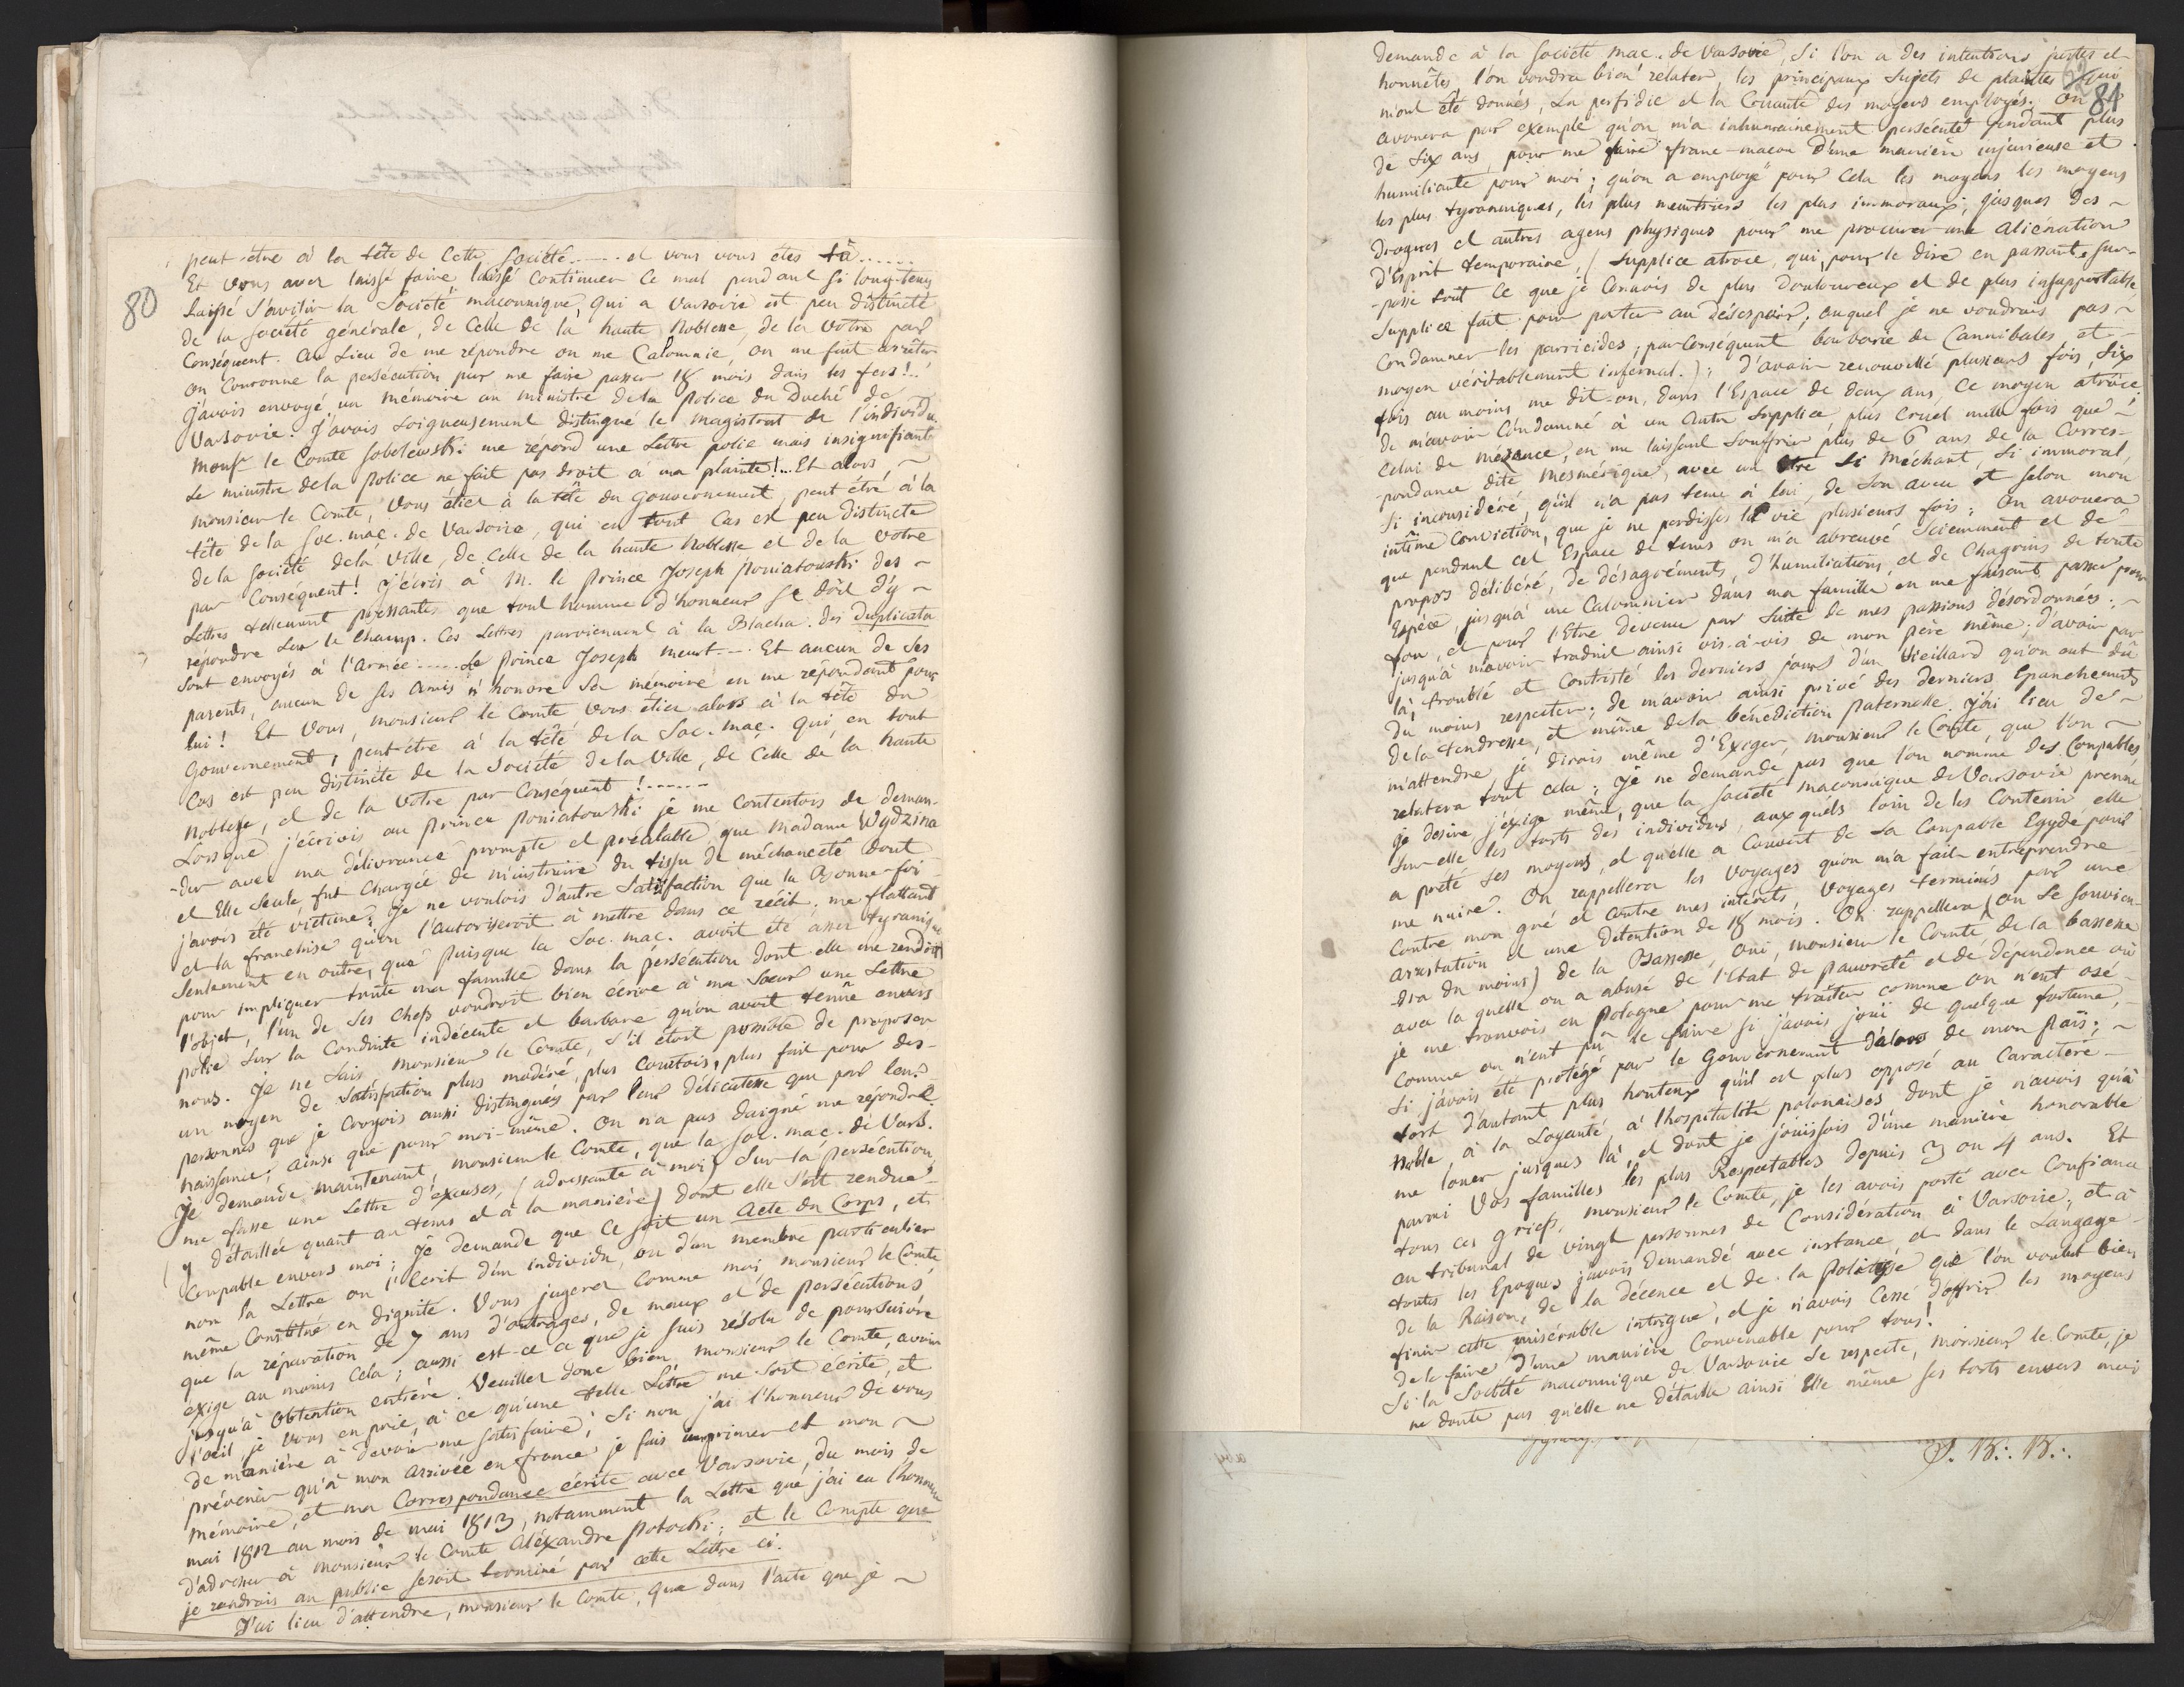 80
peut-être à la tête de cette société...... et vous vous êtes tû......
Et vous avez laissé faire laissé continuer ce mal pendant si long-tems
Laissé s'avilir la Société maçonnique, qui a Varsovie est peu distincte
de la société générale, de celle de la haute Noblesse, de la vôtre par
Conséquent. Au Lieu de me répondre on me Calomnie, on me fait arrêter
on Couronne la persécution pour me faire passer 18 mois dans les fers!..
J'avois envoyé un mémoire au ministre de la Police du Duché de
Varsovie. J'avais soigneusement distingué le magistrat de l'individu
Monsr le Comte Soboléwski me répond une Lettre polie mais insignifiante
Le ministre de la police ne fait pas droit à ma plainte!... Et alors, ~
Monsieur le Comte, Vous étiez à la tête du Gouvernement, peut être à la
tête de la Soc. maç. de Varsovie, qui en tout Cas est peu distincte
de la société dela Ville, de celle de la haute Noblesse et de la votre
par Conséquent! J'écris à M. le Prince Joseph Poniatowski des ~
Lettres tellement pressantes que tout homme d'honneur se doit d'y ~
répondre sur le champ. Ces Lettres parviennent à la Blacha. Des Duplicata
sont envoyés à l'Armée...... Le Prince Joseph meurt.... Et aucun de ses
parents, aucun de ses Amis n'honore sa mémoire en me répondant pour
lui! Et Vous, monsieur le Comte vous étiez alors à la tête du
Gouvernement, peut-être à la tête de la Soc. maç. qui en tout
Cas est peu distincte de la Société dela Ville, de Celle de la haute
Noblesse, et de la Votre par Conséquent!.......
Lorsque j'écrivis au Prince Poniatowski je me Contentois de deman-
-der avec ma délivrance prompte et préalable que Madame Wydzina
et Elle seule fut Chargée de m'instruire du tissu de méchanceté dont
j'avois été victime; Je ne voulois d'autre Satisfaction que la Bonne-foi
et la franchise qu'on l'autoriseroit à mettre dans ce récit; me flattant
seulement en outre, que puisque la Soc. mac. avoit été assez tyranique
pour impliquer toute ma famille dans la persécution dont elle me rendoit
l'objet, l'un de ses Chefs voudroit bien écrire à ma Sœur une Lettre
polie sur la Conduite indécente et barbare qu'on avoit tenûe envers
nous. Je ne Sais Monsieur le Comte, s'il étoit possible de proposer
un moyen de satisfaction plus modéré, plus courtois, plus fait pour des-
personnes que je Croyois aussi distinguées par leur délicatesse que par leur-
naissance; ainsi que pour moi-même. On n'a pas daigné me répondre
Je demande maintenant, monsieur le Comte, que la Soc. mac. de Vars.
me fasse une Lettre d'excuses, (adressante à moi) sur la persécution,
(y détaillée quant au tems et à la manière) dont elle s'est rendue
Coupable envers moi; Je demande que ce soit un Acte du Corps, et
non la Lettre ou l'Ecrit d'un individu, ou d'un membre particulier
même Constitué en dignité. Vous jugerez Comme moi, monsieur le Comte
que la réparation de 7 ans d'outrages, de maux et de persécutions
exige au moins cela; aussi est-ce ce que je suis résolu de poursuivre
jusqu'à Obtention entière. Veuillez donc bien, Monsieur le Comte, avoir
l'oeil je vous en prie, à ce qu'une telle Lettre me soit écrite, et
de manière à devoir me satisfaire; Si non j'ai l'honneur de vous
prévenir qu'à mon arrivée en France je fais imprimer et mon ~
mémoire, et ma Correspondance écrite avec Varsovie, du mois de
mai 1812 au mois de mai 1813, notamment la Lettre que j'ai eu l'honneur
d'adresser à Monsieur le Comte Aléxandre Potocki; et le Compte que
je rendrois au public seroit terminé par cette Lettre ci.
J'ai lieu d'attendre, monsieur le Comte, que dans l'acte que je ~
84
demande à la société mac. de Varsovie, si l'on a des intentions justes et
honnêtes, l'on voudra bien relater, les principaux sujets de plaintes qui
m'ont été donnés, La perfidie et la Cruauté des moyens employés. On
avouera par exemple qu'on m'a inhumainement persécuté pendant plus
de Six ans, pour me faire franc-maçon d'une manière injurieuse et
humiliante pour moi; qu'on a employé pour Cela les moyens les moyens
les plus tyranniques, les plus meurtriers les plus immoraux; jusques des ~
Drogues et autres agens physiques pour me procurer une aliénation
d'Esprit temporaire, (supplice atroce, qui, pour le dire en passant, sur-
-passe tout ce que je Connois de plus Douloureux et de plus insupportable
supplice fait pour porter au désespoir; auquel je ne voudrais pas ~
Condamner les parricides; par conséquent barbarie de Cannibales et
moyen véritablement infernal.); d'avoir renouvellé plusieurs fois, Six
fois au moins me dit-on, dans l'Espace de deux ans, Ce moyen atroce;
de m'avoir Condamné à un Autre supplice, plus Cruel mille fois que ~
Celui de Mezence, en me laissant Souffrir plus de 6 ans de la Corres-
pondance dite Mesmérique, avec un Etre si méchant, si immoral,
si inconsidéré, qu'il n'a pas tenu à lui, de son aveu et selon mon
intime Conviction, que je ne perdisse la vie plusieurs fois; On avouera
que pendant cet Espace de tems on m'a abreuvé sciemment et de
propos délibéré, de désagréments, d'humiliations, et de Chagrins de toute
Espèce, jusqu'à me Calomnier dans ma famille en me faisant passer pour
fou, et pour l'Etre devenu par suite de mes passions désordonnées; ~
jusqu'à m'avoir traduit ainsi vis-à-vis de mon père même; d'avoir par
là, troublé et Contristé les derniers jours d'un Vieillard qu'on eut dû
du moins respecter; de m'avoir ainsi privé des derniers Epanchements
dela tendresse, et même dela bénédiction paternelle. J'ai lieu de ~
m'attendre, je dirois même d'Exiger, monsieur le Comte, que l'on ~
relatera tout cela; Je ne demande pas que l'on nomme des Coupables,
je desire, j'exige même, que la société maconnique de Varsovie prenne
sur elle les torts des individus, auxquels loin de les Contenir elle
a prêté ses moyens, et qu'elle a Couvert de sa Coupable Egyde pour
me nuire. On rappellera les Voyages qu'on m'a fait entreprendre
Contre mon gré et contre mes intérêts Voyages terminés par une
arrestation et une détention de 18 mois. On rappellera (on se souvien-
-dra du moins) de la Bassesse, oui, monsieur le Comte de la bassesse
avec la quelle on a abusé de l'Etat de pauvreté et de dépendance où
je me trouvois en Pologne pour me traiter comme on n'eut osé-
comme on n'eut pû le faire si j'avois joui de quelque fortune, -
si j'avois été protégé par le Gouvernement d'alors de mon Païs; ~
tort d'autant plus honteux qu'il est plus opposé au Caractère-
Noble à la Loyauté, à l'hospitalité polonaises dont je n'avois qu'à
me louer jusques là, et dont je jouissois d'une manière honorable
parmi Vos familles les plus Respectables depuis 3 ou 4 ans. Et
tous ces griefs, monsieur le Comte, je les avois porté avec Confiance
au tribunal de vingt personnes de Considération à Varsovie; et à
toutes les Epoques j'avois demandé avec instance, et dans le Langage
de la Raison, de la décence et de la politesse que l'on voulut bien
finir cette misérable intrigue, et je n'avois Cessé d'offrir les moyens
de le faire d'une manière Convenable pour tous!
Si la Société maconnique de Varsovie se respecte, monsieur le Comte, je
ne doute pas qu'elle ne détaille ainsi Elle même ses torts envers moi